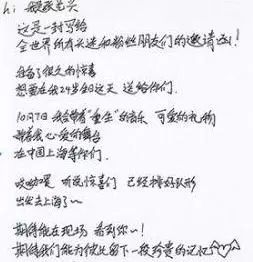 hi
这是一封写给
全世界所有头迷和粉丝朋友们的邀请函！
准备了很久的惊喜
想要在我24岁的这天 送给你们.
10月7日 我会带着"重生"的音乐 可爱的礼物
和我心爱的舞台
在中国上海等你们.
哎呦喂 听说惊喜们 已经排好队形
出发去上海了～
期待能在现场 看到你～!
期待我们能为彼此留下一段珍贵的记忆